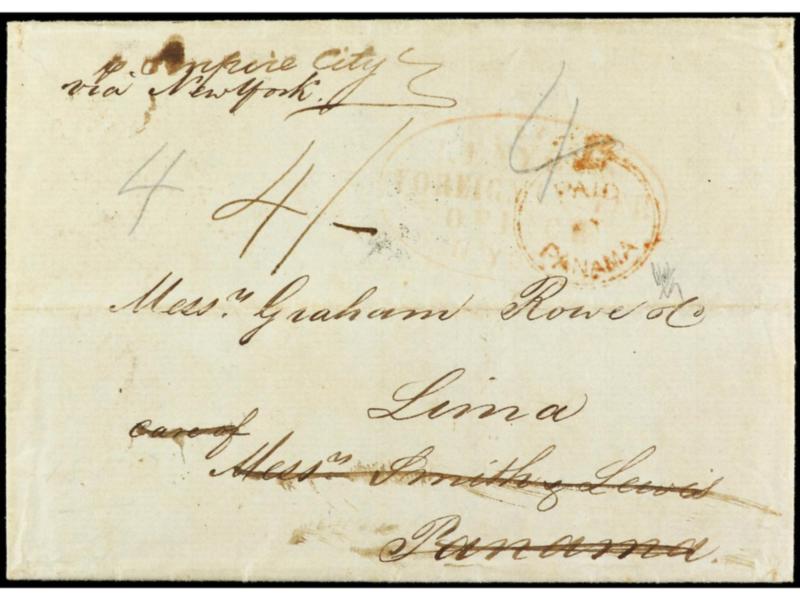 p Empire City
via New York.
4
4/-
4
FOREIGN
OFFICE
PAID
PANAMA
Messrs Graham Rowe & Co
Lima
care of
Messrs Smith & Lewis
Panama.